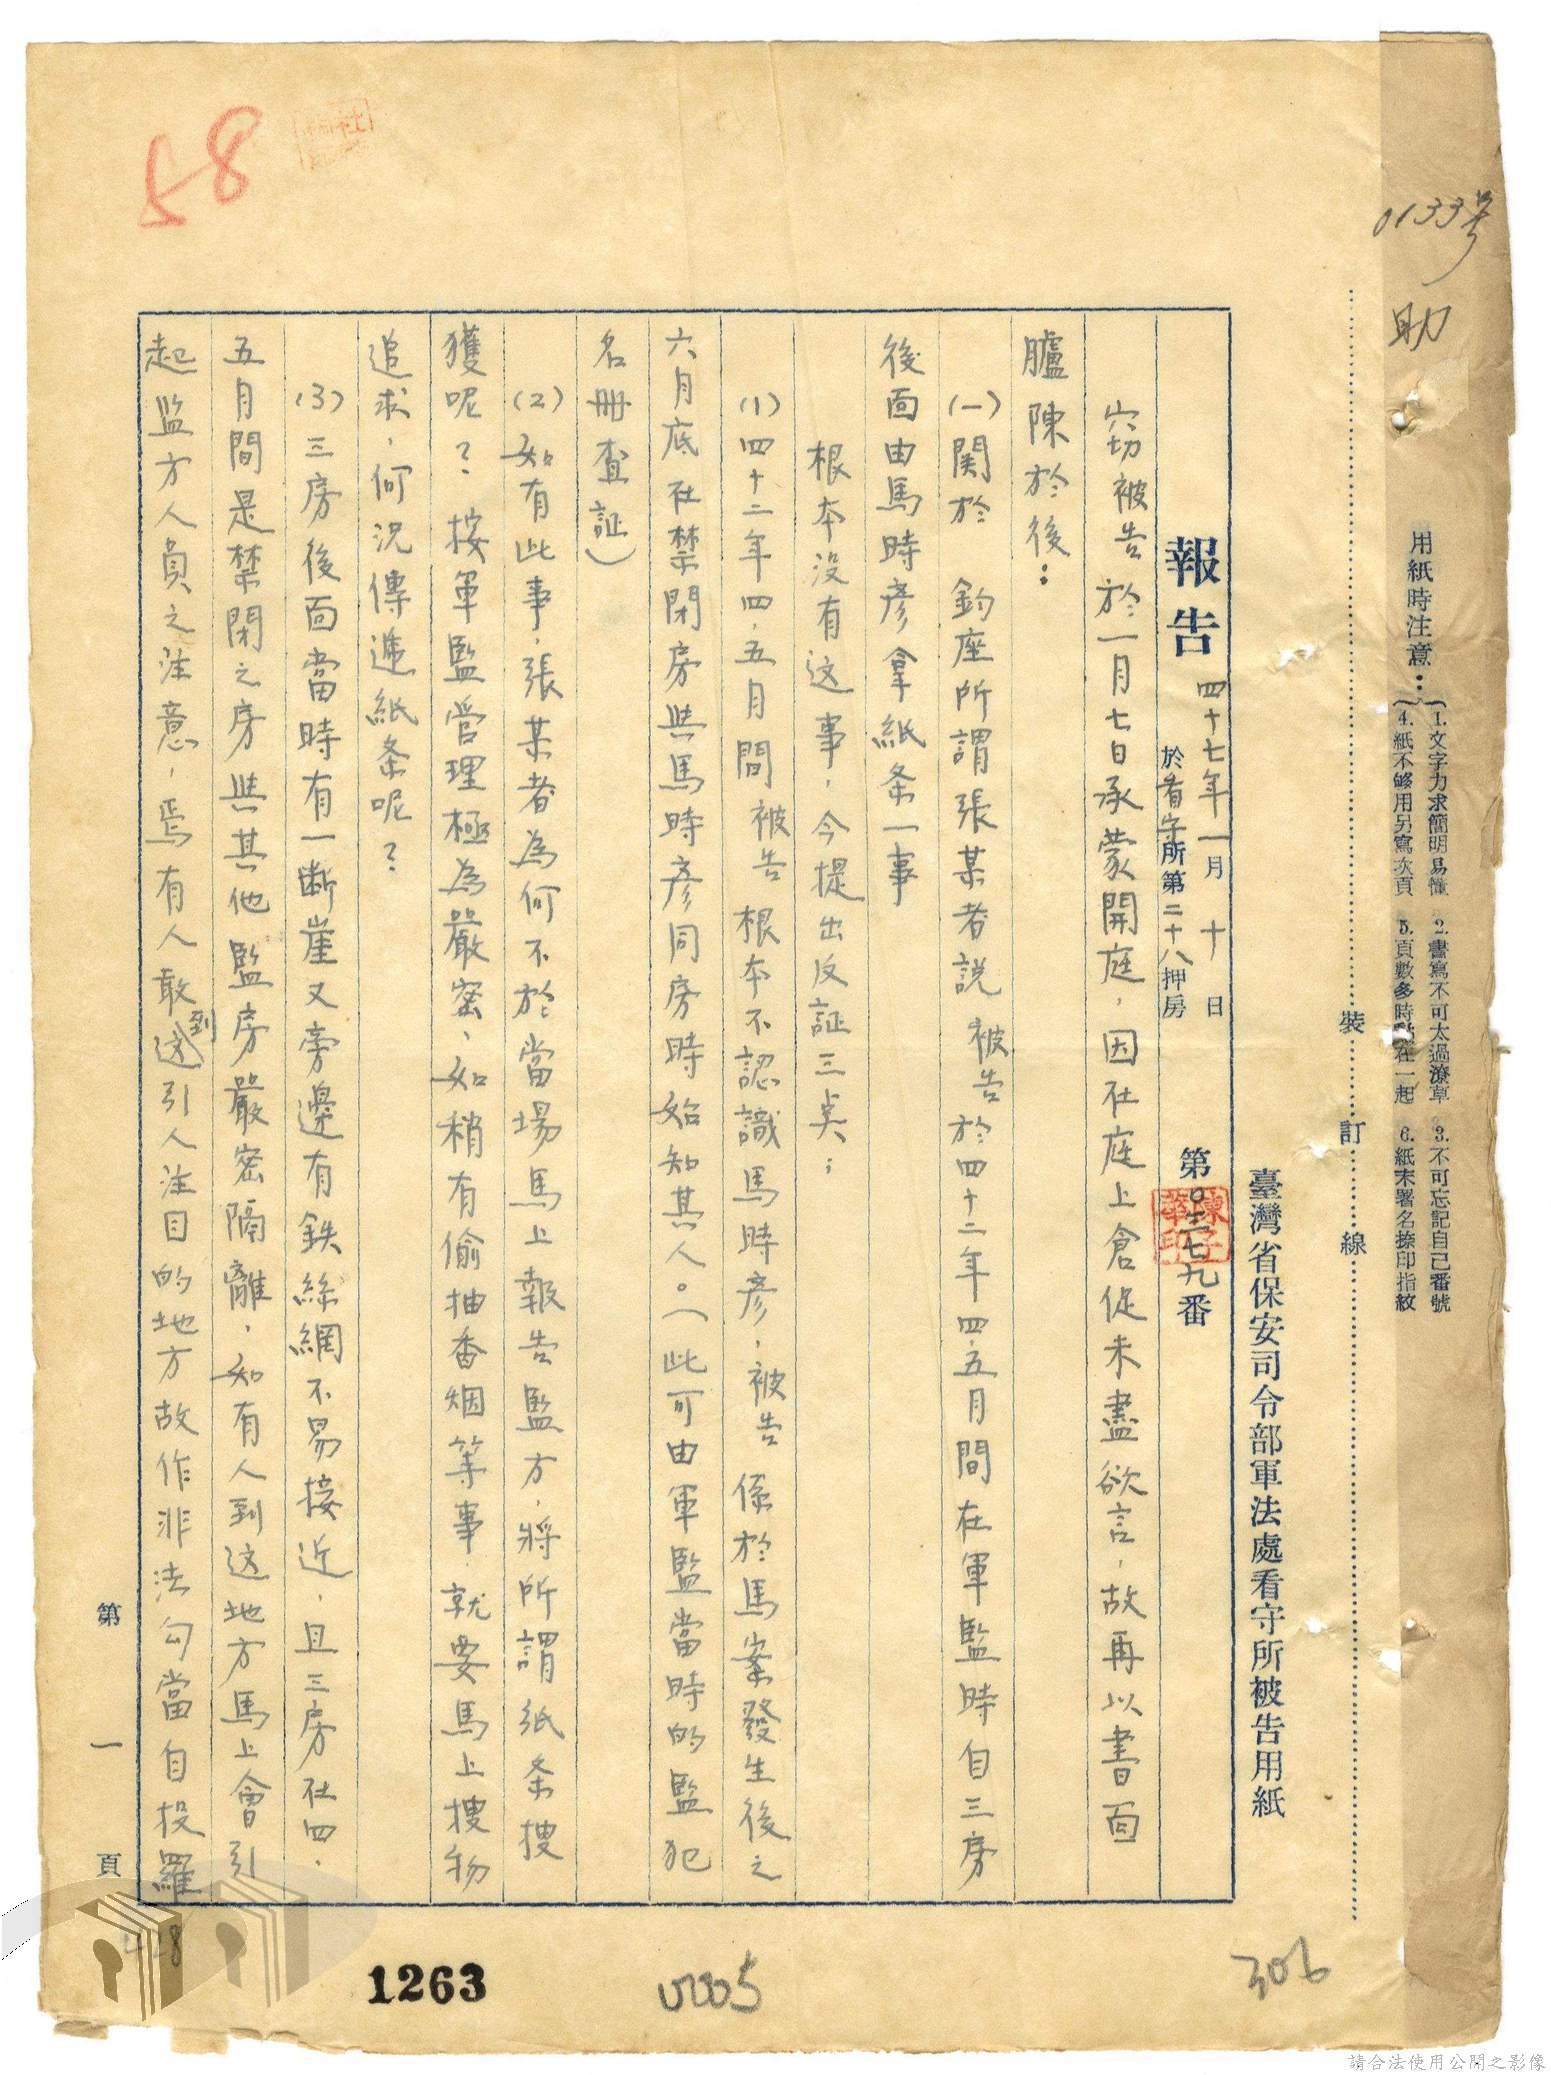 0133号
助
用紙時注意：
1.文字力求簡明易懂 2.書寫不可太過潦草 3.不可忘記自己番號
4.紙不够用另寫次頁 5.頁數多時黏在一起 6.紙末署名捺印指紋
裝訂線
臺灣省保安司令部軍法處看守所被告用紙
報告 四十七年一月十日
於看守所第二十八押房
第 番
竊被告於一月七日承蒙開庭，因在庭上倉促未盡欲言，故再以書面
臚陳於後：
(一)関於 鈞座所謂張某者說 被告於四十二年四、五月間在軍監時自三房
後面由馬時彥拿紙条一事
根本没有这事，今提出反証三点；
(1)四十二年四、五月間 被告 根本不認識馬時彥，被告 係於馬案發生後之
六月底在禁閉房與馬時彥同房時始知其人。(此可由軍監當時的監犯
名冊查証)
(2)如有此事，張某者為何不於當場馬上報告監方，將所謂紙条搜
獲呢？按軍監管理極為嚴密，如稍有偷抽香烟等事，就要馬上搜物
追求，何況傳遞紙条呢？
(3)三房後面當時有一断崖又旁邊有鉄絲網不易接近，且三房在四、
五月間是禁閉之房與其他監房嚴密隔離，如有人到这地方馬上會引
起监方人員之注意，焉有人敢到这引人注目的地方故作非法勾當自投羅
第一頁
58
1263
306
請合法使用公開之影像